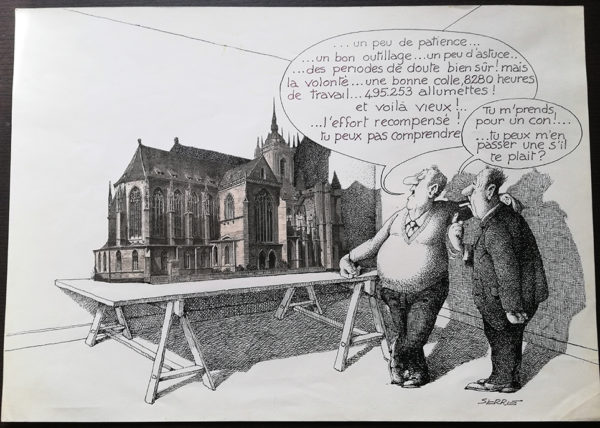 ... un peu de patience...
... un bon outillage... un peu d'astuce..
... des periodes de doute bien sûr! mais
la volonté... une bonne colle, 8280 heures
de travail... 495.253 allumettes!
et voilà vieux!..
...l'effort recompensé!
tu peux pas comprendre
Tu m'prends,
pour un con!...
...tu peux m'en
passer une s'il
te plait?
SERRE